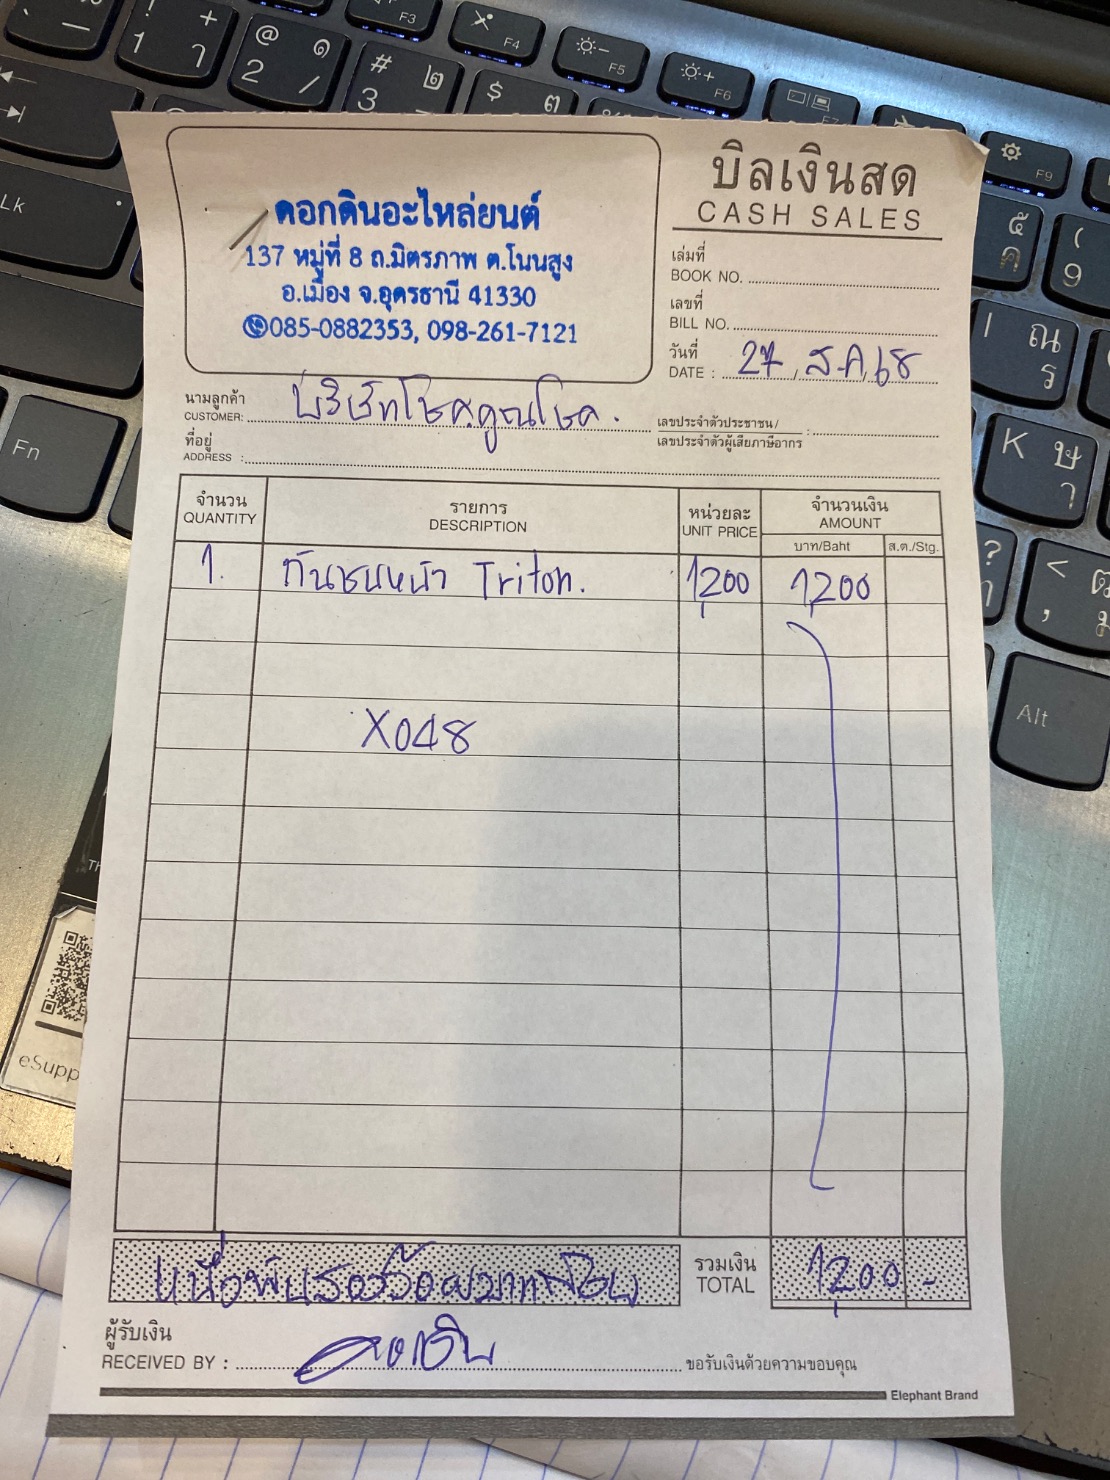 บิลเงินสด
CASH SALES
ดอกดินอะไหล่ยนต์
137 หมู่ที่ 8 ถ.มิตรภาพ ต.โนนสูง
อ.เมือง จ.อุดรธานี 41330
085-0882353, 098-261-7121
เล่มที่
BOOK NO.
เลขที่
BILL NO.
วันที่
DATE : 27, ส.ค, 68
นามลูกค้า
CUSTOMER: บริษัทโชคคูณโชค.
เลขประจำตัวประชาชน/
เลขประจำตัวผู้เสียภาษีอากร :
ที่อยู่
ADDRESS :
จำนวน รายการ หน่วยละ จำนวนเงิน
QUANTITY DESCRIPTION UNIT PRICE AMOUNT
บาท/Baht ส.ต./Stg.
1. กันชนหน้า Triton. 1,200 1,200
X048
หนึ่งพันสองร้อยบาทถ้วน รวมเงิน 1,200 -
TOTAL
ผู้รับเงิน
RECEIVED BY : ขอรับเงินด้วยความขอบคุณ
Elephant Brand
! + F3 F4 F5 F6 F7 F9
1 ๅ @ ๑ 2 / # ๒ 3 $ ๓
Lk
Fn
K ษ
Alt
eSupp